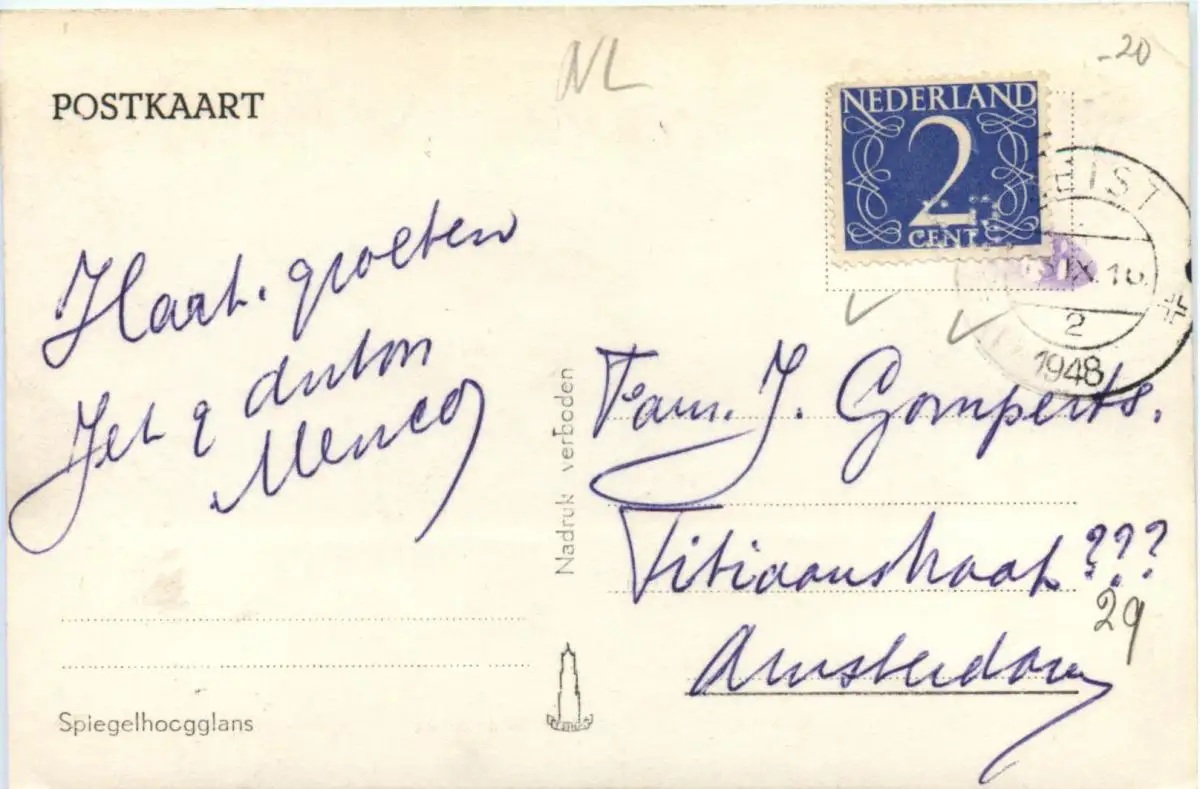 NL
-20
POSTKAART
NEDERLAND
2
CENT
IX.16
2
1948
Hart. groeten
Jet & Anton
Menco
Nadruk verboden
Fam. J. Gomperts.
Titiaanstraat ???
29
Amsterdam
Spiegelhoogglans